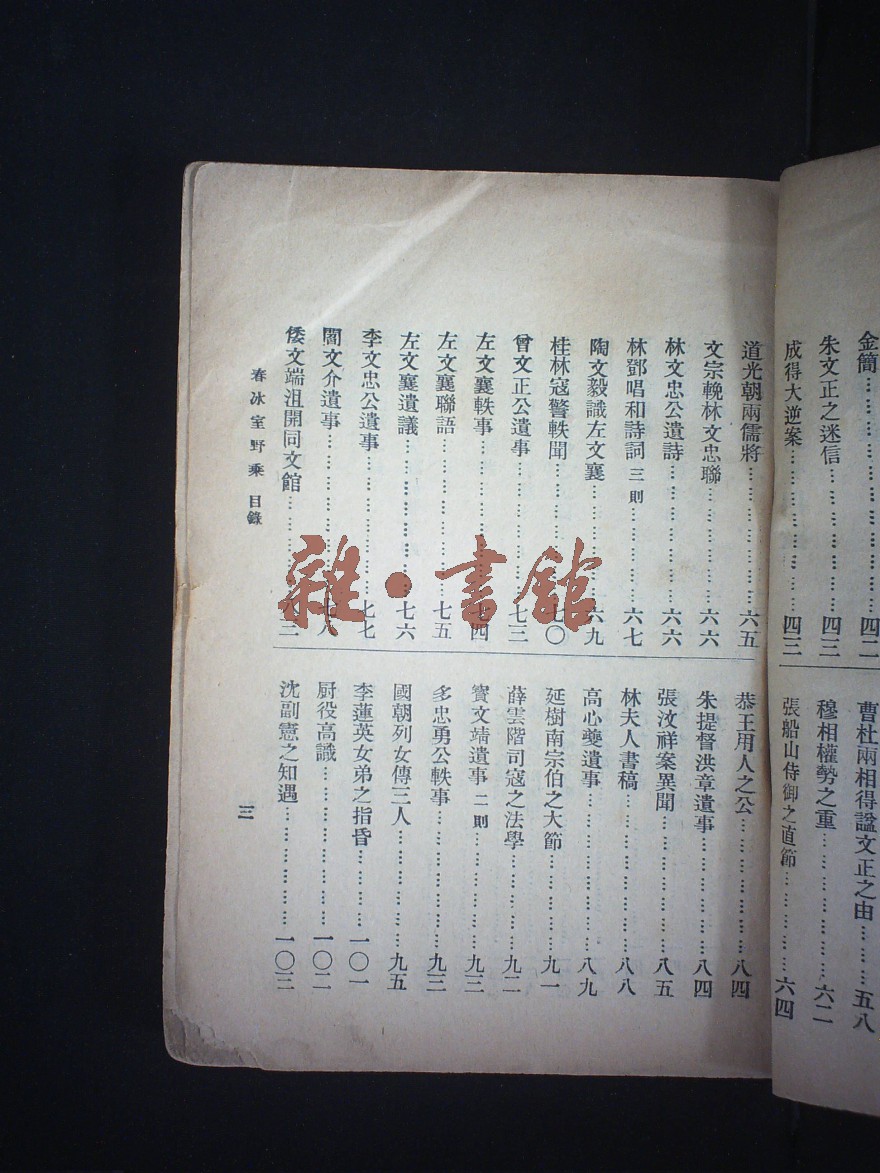 金簡……………四二
朱文正之迷信……………四三
成得大逆案……………四三
曹杜兩相得諡文正之由……五八
穆相權勢之重……………六二
張船山侍御之直節……………六四
道光朝兩儒將……………六五
文宗輓林文忠聯……………六六
林文忠公遺詩……………六六
林鄧唱和詩詞 三則……………六七
陶文毅識左文襄……………六九
桂林寇警軼聞……………七〇
曾文正公遺事……………七三
左文襄軼事……………七四
左文襄聯語……………七五
左文襄遺議……………七六
李文忠公遺事……………七七
閻文介遺事……………七八
倭文端沮開同文館……………八三
恭王用人之公……………八四
朱提督洪章遺事……………八四
張汶祥案異聞……………八五
林夫人書稿……………八八
高心夔遺事……………八九
延樹南宗伯之大節……………九一
薛雲階司寇之法學……………九二
寶文靖遺事 二則……………九三
多忠勇公軼事……………九三
國朝列女傳三人……………九五
李蓮英女弟之指昏……………一〇一
厨役高識……………一〇二
沈副憲之知遇……………一〇三
春冰室野乘 目錄
三
雜·書館